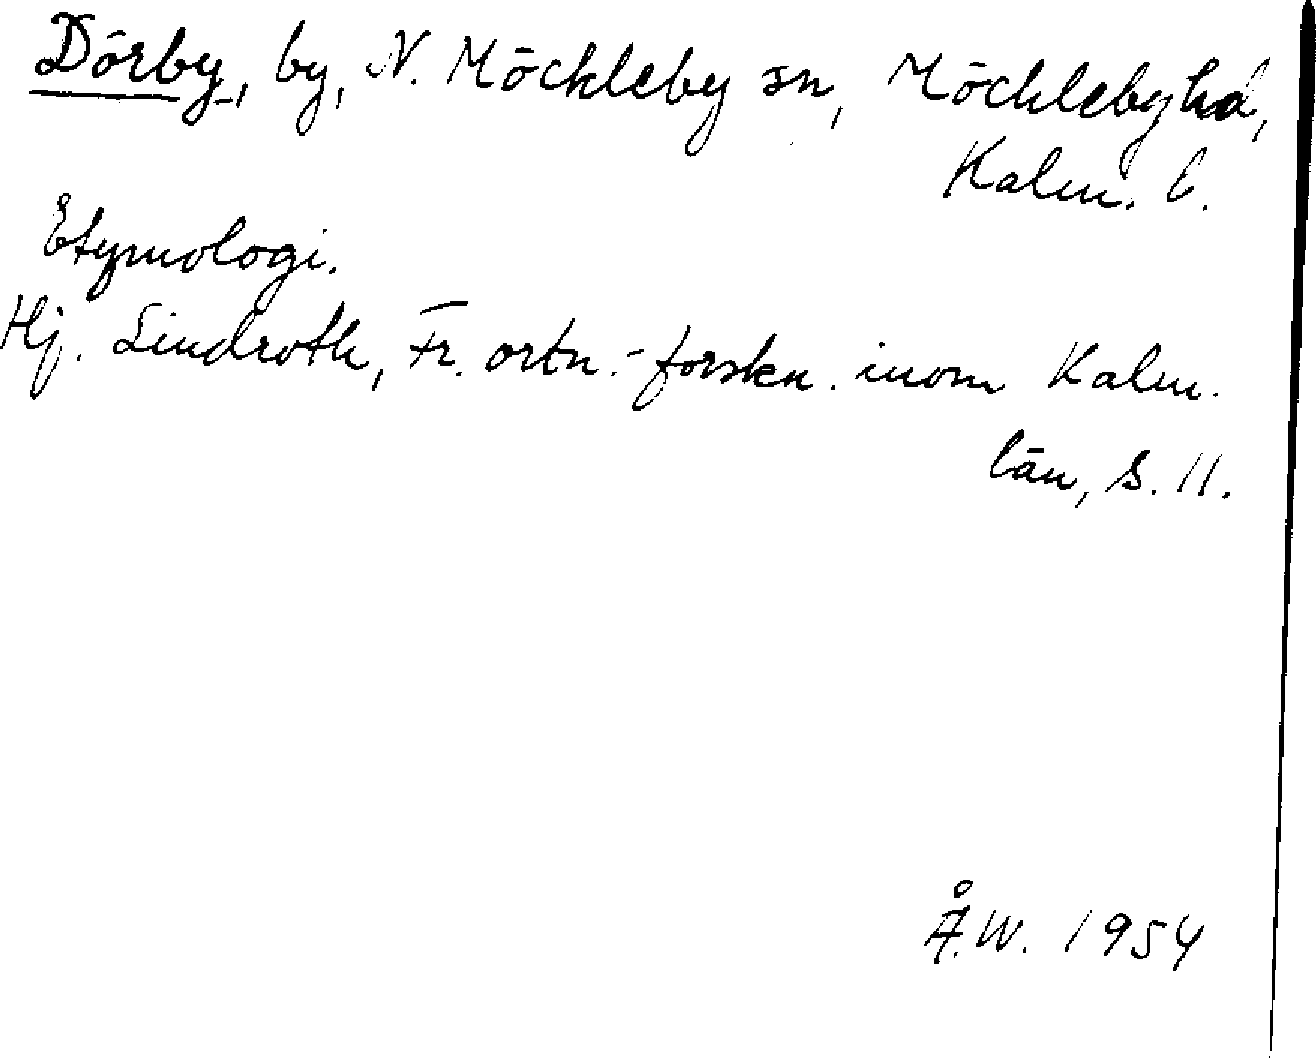 Dörby, by, N. Möckleby sn, Möckleby hd,
Kalm. l.
Etymologi.
Hj. Lindroth, Fr. ortn.-forskn. inom Kalm.
län, s. 11.
Å.W. 1954